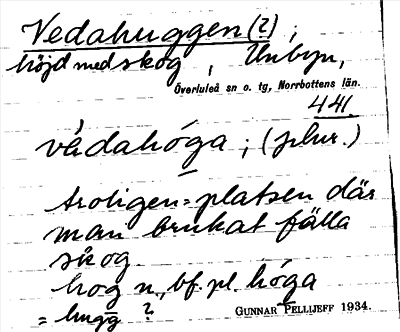 Vedahuggen (?);
höjd med skog, Unbyn,
Överluleå sn o. tg, Norrbottens län.
441.
vèdahóga; (plur.)
troligen = platsen där
man brukat fälla
skog.
hog n., bf. pl. hóga
= hugg ?
GUNNAR PELLIJEFF 1934.